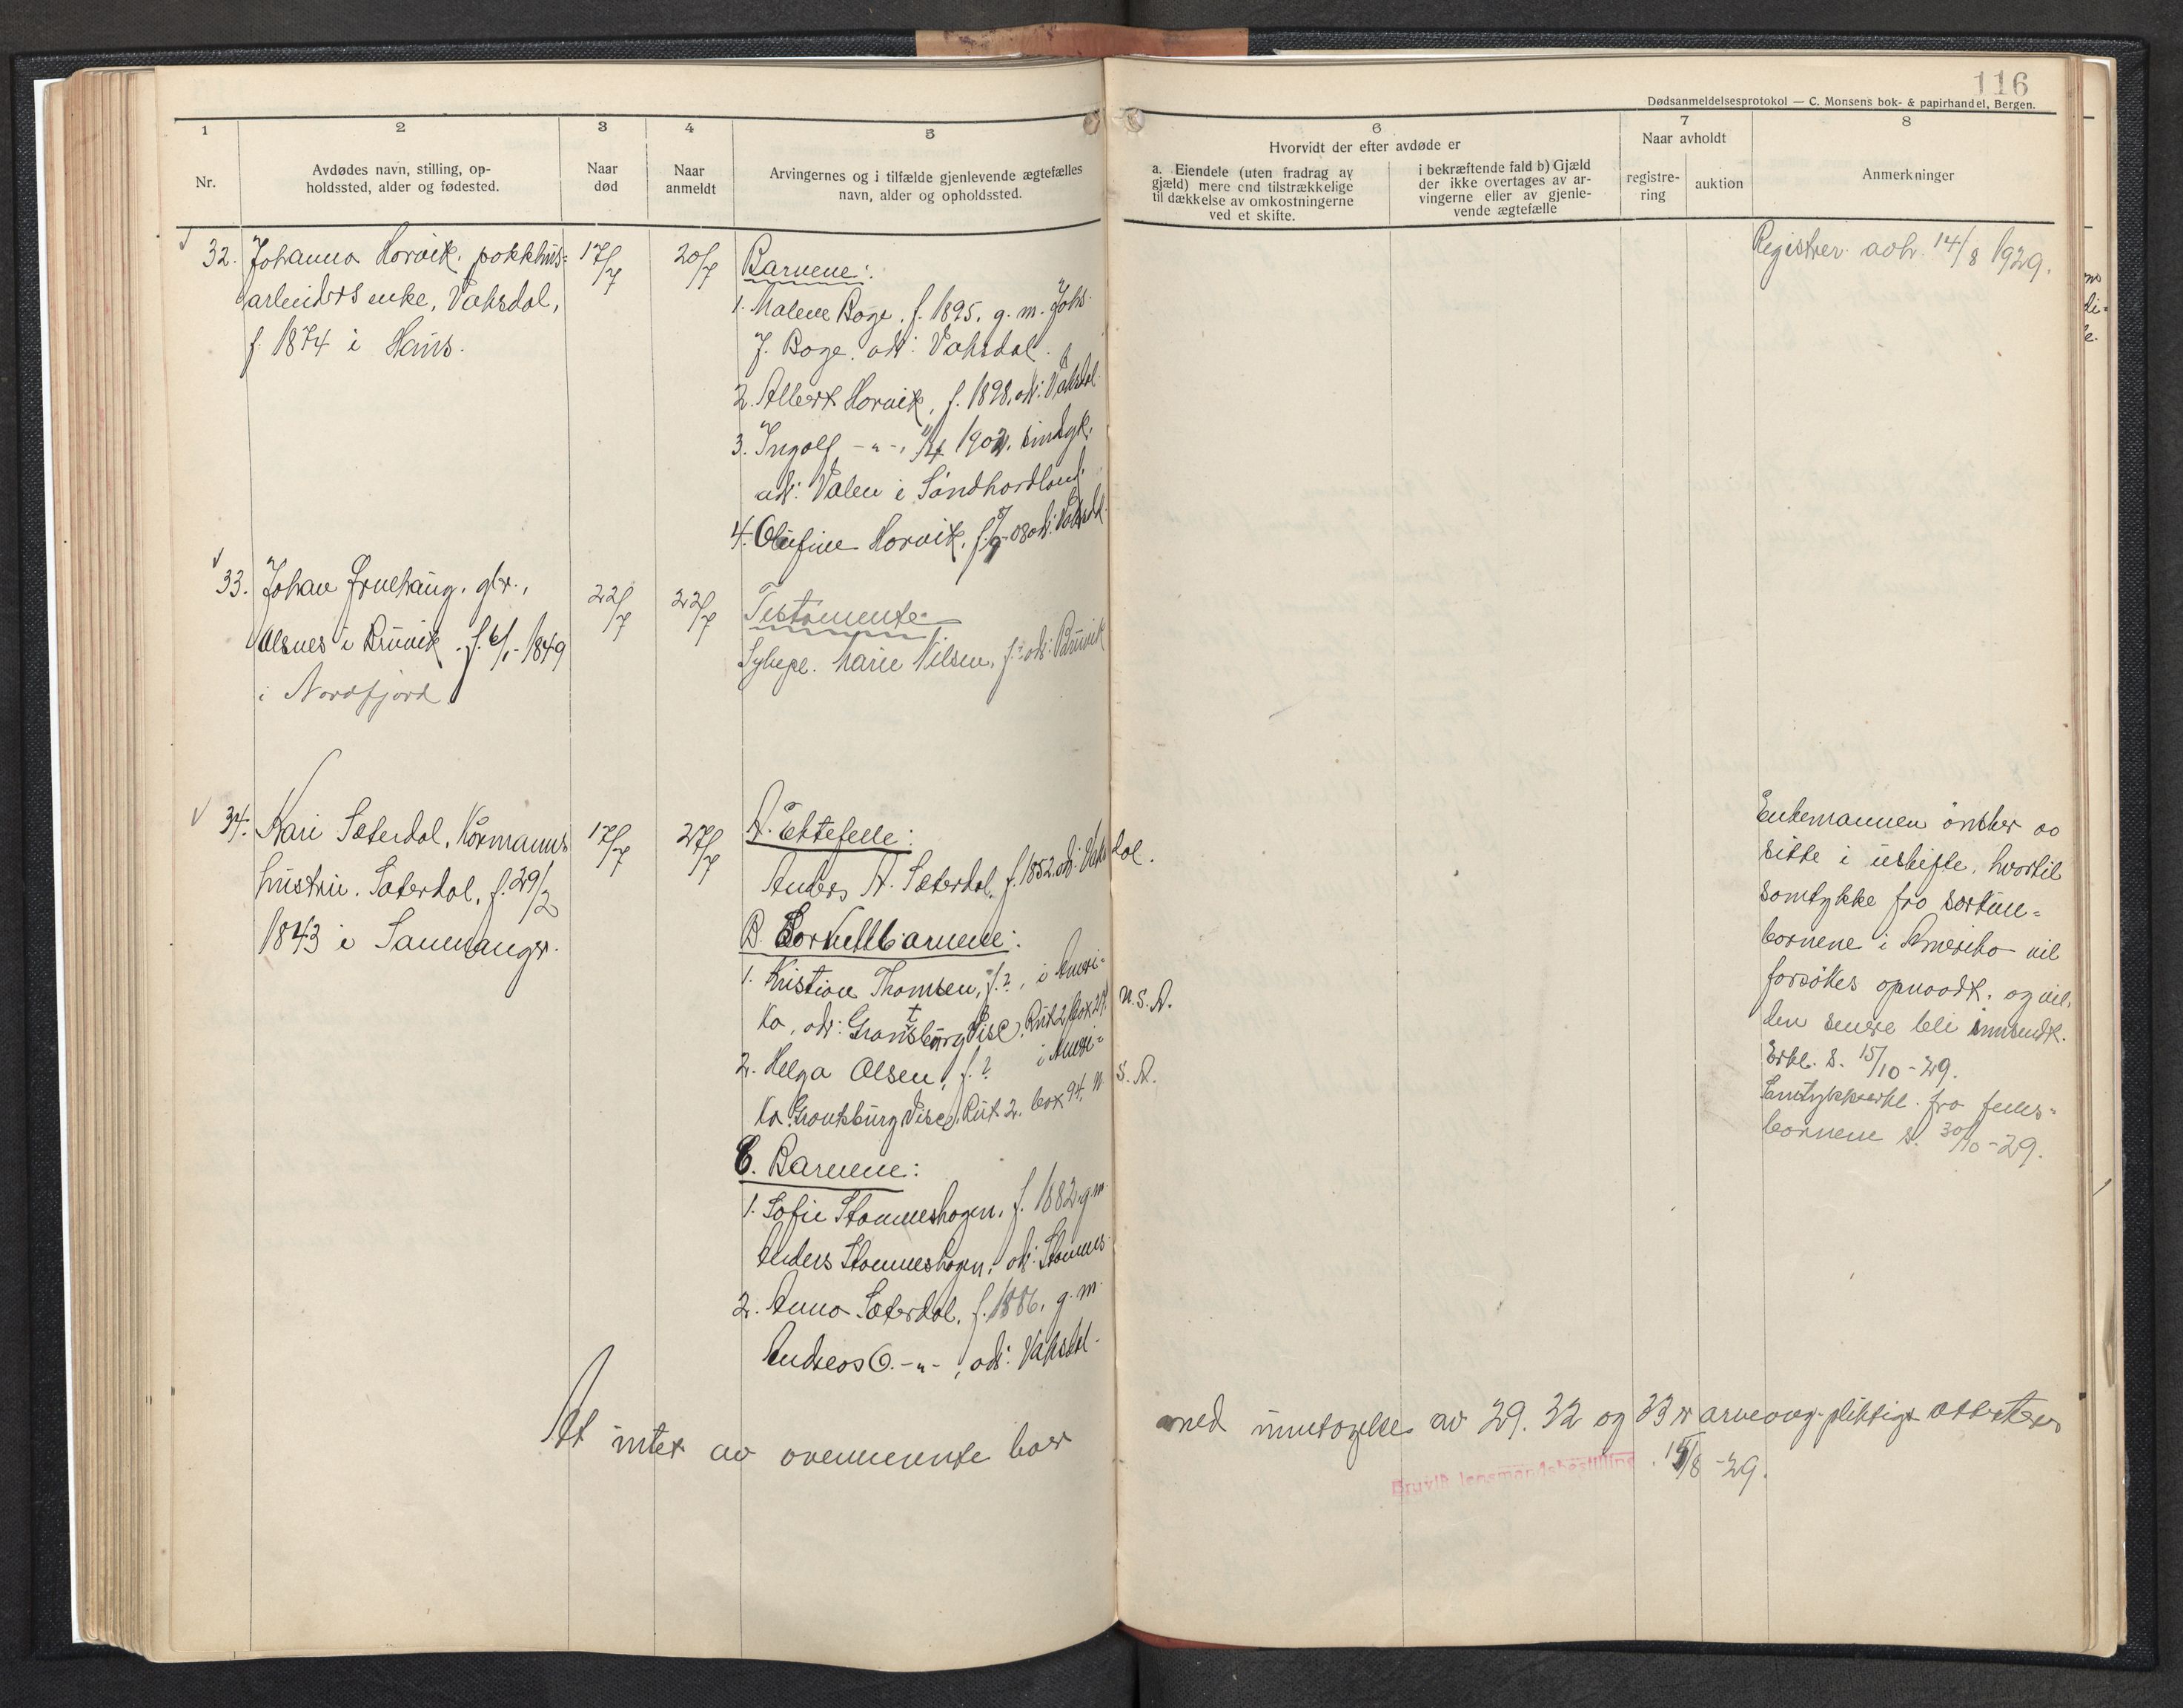 116
Dødsanmeldelsesprotokol — C. Monsens bok- & papirhandel, Bergen.
1
2
3
4
5
6
7
8
Nr.
Avdødes navn, stilling, op-
holdssted, alder og fødested.
Naar
død
Naar
anmeldt
Arvingernes og i tilfælde gjenlevende ægtefælles
navn, alder og opholdssted.
Hvorvidt der efter avdøde er
a. Eiendele (uten fradrag av
gjæld) mere end tilstrækkelige
til dækkelse av omkostningerne
ved et skifte.
i bekræftende fald b) Gjæld
der ikke overtages av ar-
vingerne eller av gjenle-
vende ægtefælle
Naar avholdt
registre-
ring
auktion
Anmerkninger
32. Johanna Horvik, pakkhus=
arbeiders enke, Vaksdal,
f. 1874 i Haus.
17/7
20/7
Barnene:
1. Malene Boge, f. 1895, g. m. Johs.
J. Boge, adr: Vaksdal.
2. Albert Horvik, f. 1898, adr: Vaksdal
3. Ingolf -"-, 1902, sinsyk,
adr: Valen i Sündhordland
4. Olufine Horvik, f. 08 adr: Vaksdal
Registrer. avh. 14/8 1929.
33. Johan
Olsnes i Bruvik. f. 6/1-1849
i Nordfjord
22/7
22/7
Testamente
Sykepl. Marie Nilsen, f. ? adr: Bruvik
34. Kari Sæterdal, kårmanns
hustru. Sæterdal, f. 29/2
1843 i Samnanger.
17/7
27/7
A. Ektefelle:
Anders A. Sæterdal, f. 1852. adr: Vaksdal.
B. Sorkullbarnene:
1. Kristian Thomsen, f. ?, i Ameri=
ka, adr: Grantsburg Visc. Rut 2 box 27 U.S.A.
2. Helga Olsen, f. ? i Ameri=
ka. Grantsburg Visc. Rut 2. box 94. U.S.A.
C. Barnene:
1. Sofie Stammeshagen, f. 1882, g. m.
Anders Stammeshagen, adr: Stamnes
2. Anna Sæterdal, f. 1886, g. m.
Andreas O. -"-, adr: Vaksdal.
Enkemannen ønsker aa
sitte i uskifte, hvortil
samtykke fra
barnene i Amerika vil
forsøkes opnaadt, og vil
den senere bli innsendt.
Erkl. s. 15/10-29.
Samtykkeerkl. fra
barnene s. 30/10-29.
At intet av ovennevnte boer
med unntagelse av 29. 32 og 33 er arveavg. pliktige attesteres
Bruvik lensmandsbestilling. 15/8-29.